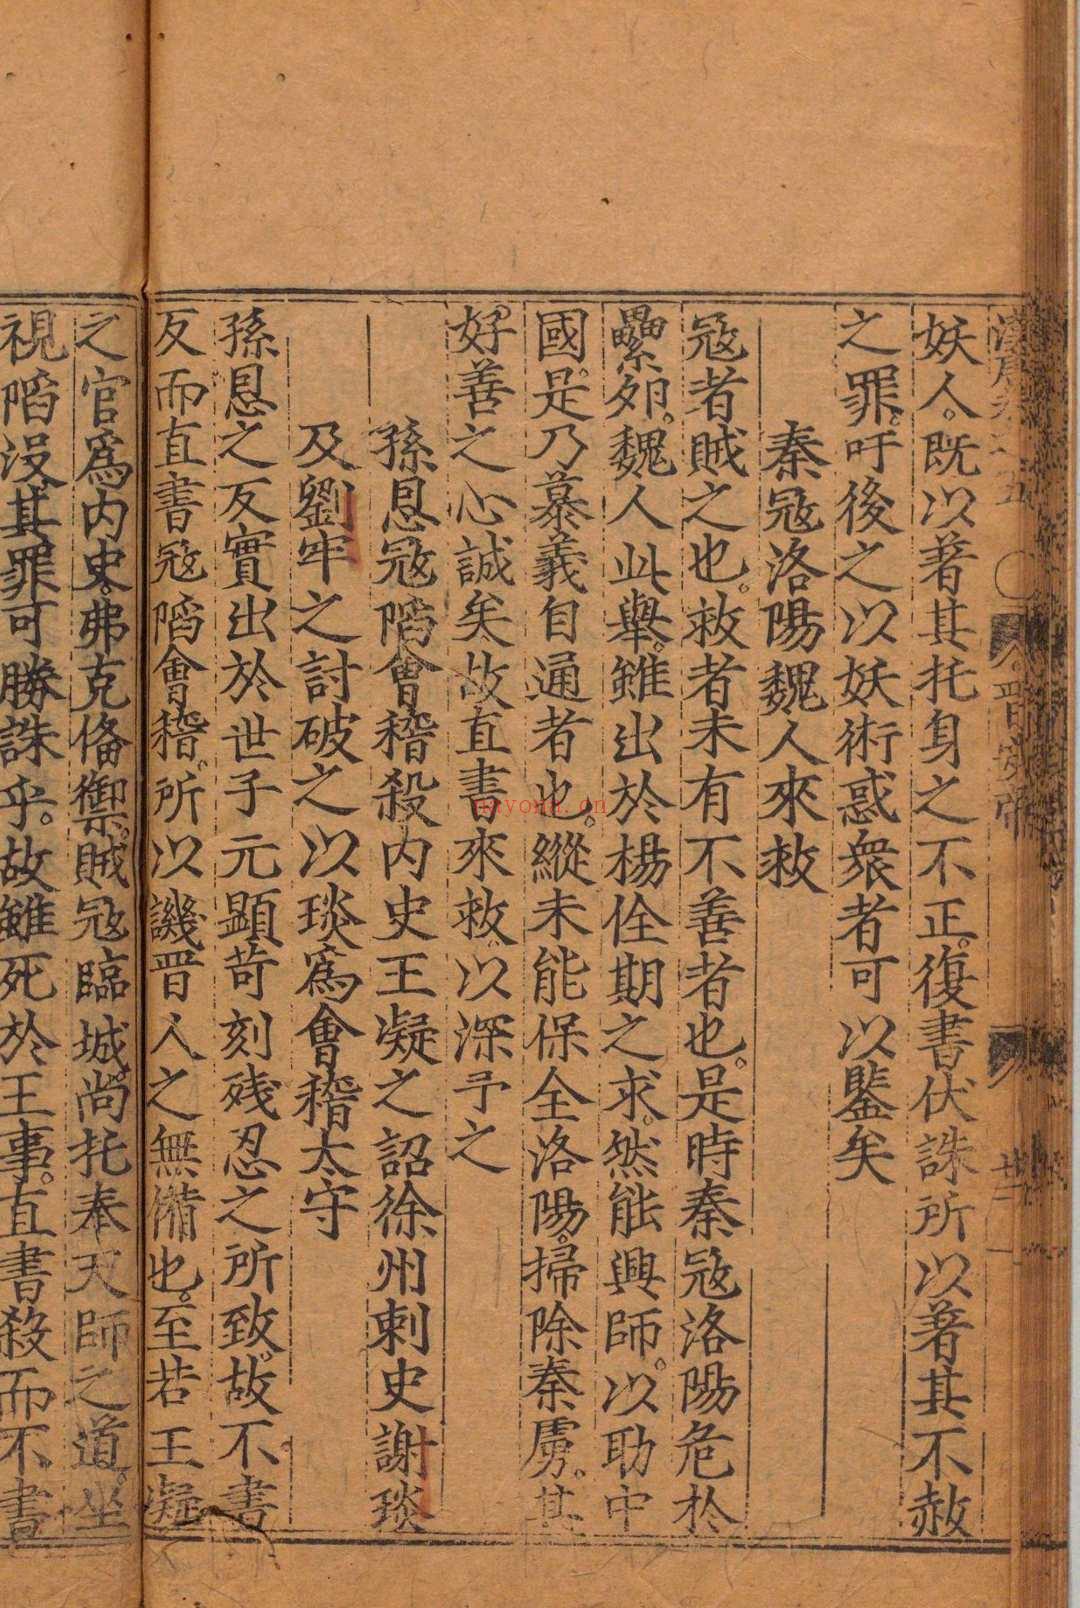 妖人。既以著其托身之不正。復書伏誅所以著其不赦
之罪。吁後之以妖術惑衆者可以鑒矣
秦寇洛陽魏人來救
寇者賊之也。救者未有不善者也。是時秦寇洛陽危於
纍夘。魏人此舉。雖出於楊佺期之求。然能興師。以助中
國。是乃慕義自通者也。縱未能保全洛陽。掃除秦虜。其
好善之心誠矣故直書來救。以深予之
孫恩寇䧟會稽殺内史王凝之詔徐州刺史謝琰
及劉牢之討破之以琰爲會稽太守
孫恩之反實出於世子元顯苛刻殘忍之所致。故不書
反而直書寇䧟會稽。所以譏晋人之無備也。至若王凝
之官爲内史。弗克俻禦。賊寇臨城尚托奉天師之道。坐
視䧟沒。其罪可勝誅乎。故雖死於王事。直書殺而不書
晋安帝
nayona.cn